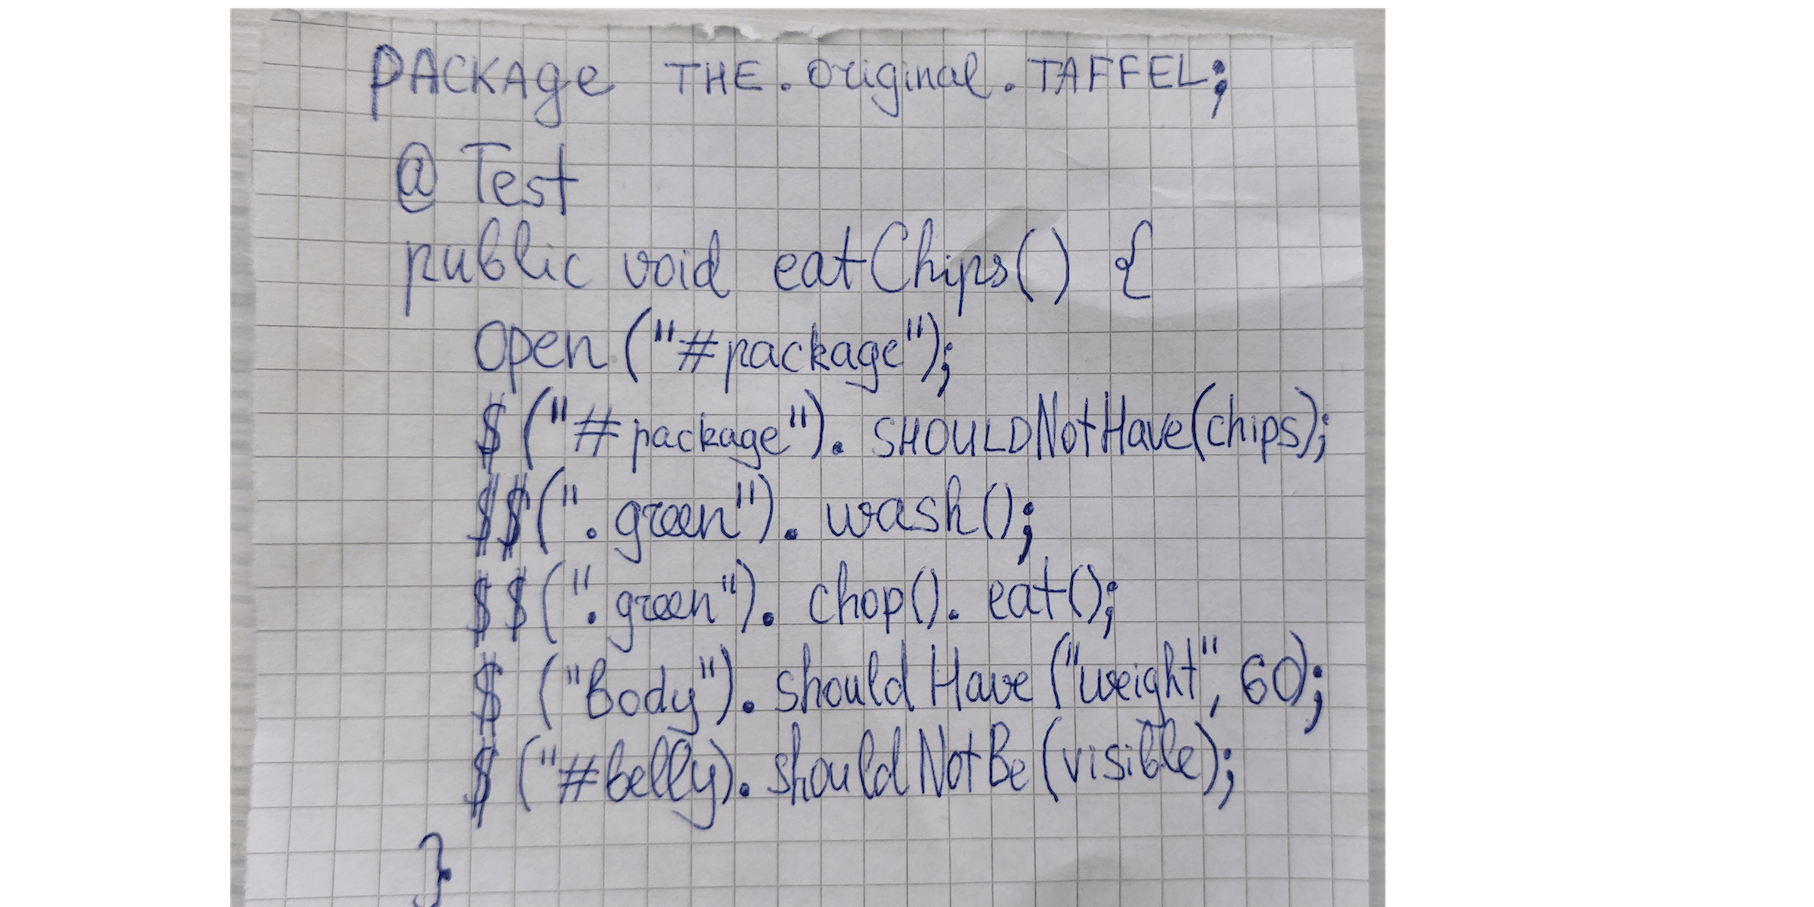 PACKAge THE.original.TAFFEL;
@Test
public void eatChips() {
open("#package");
$("#package").SHOULDNotHave(chips);
$$(".green").wash();
$$(".green").chop().eat();
$("Body").shouldHave("weight", 60);
$("#belly).shouldNotBe(visible);
}